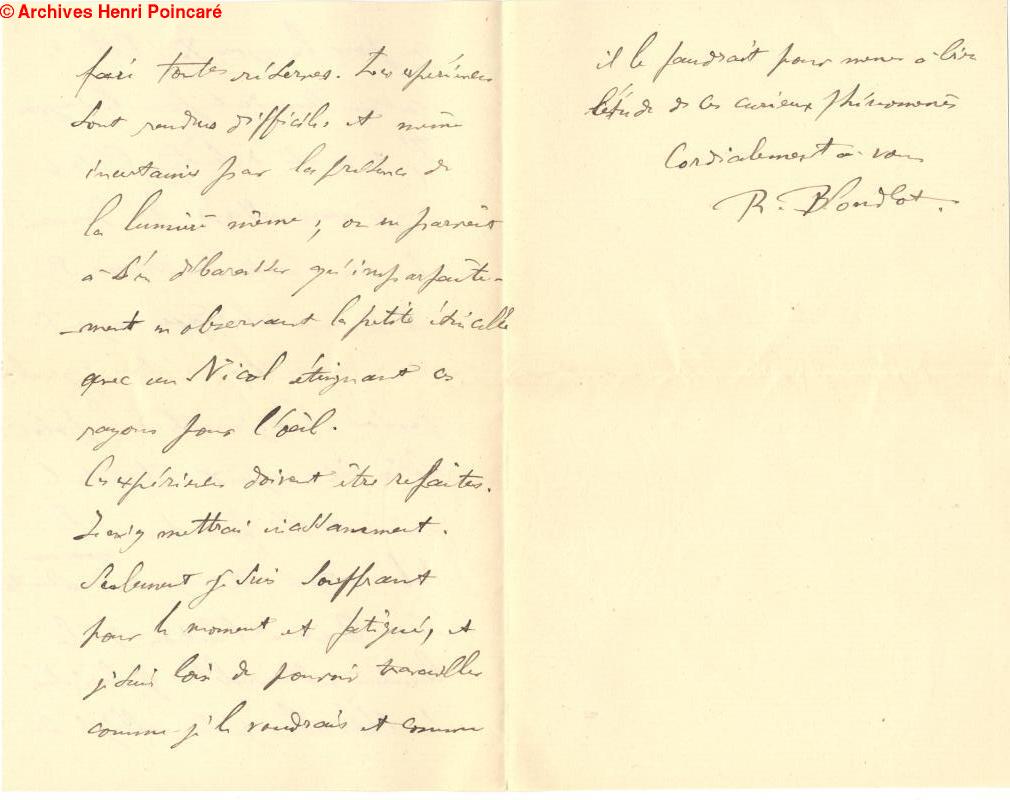 © Archives Henri Poincaré
fais toutes réserves. Les expériences
sont rendues difficiles et même
incertaines par la présence de
la lumière même ; on ne parvient
à s'en débarasser qu'imparfaite-
-ment en observant la petite étincelle
avec un Nicol éteignant ces
rayons pour l'oeil.
Ces expériences doivent être refaites.
Je m'y mettrai incessamment.
Seulement je suis souffrant
pour le moment et fatigué, et
je suis loin de pouvoir travailler
comme je le voudrais et comme
il le faudrait pour mener à bien
l'étude de ces curieux phénomènes
Cordialement à vous
R. Blondlot.